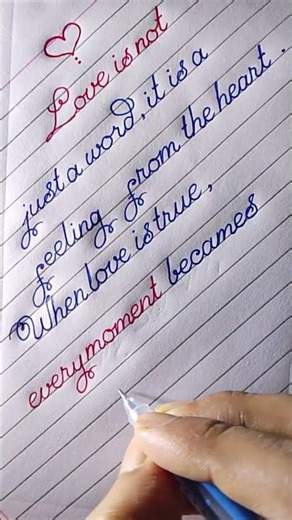 Love is not
just a word, it is a
feeling from the heart.
When love is true,
every moment becames